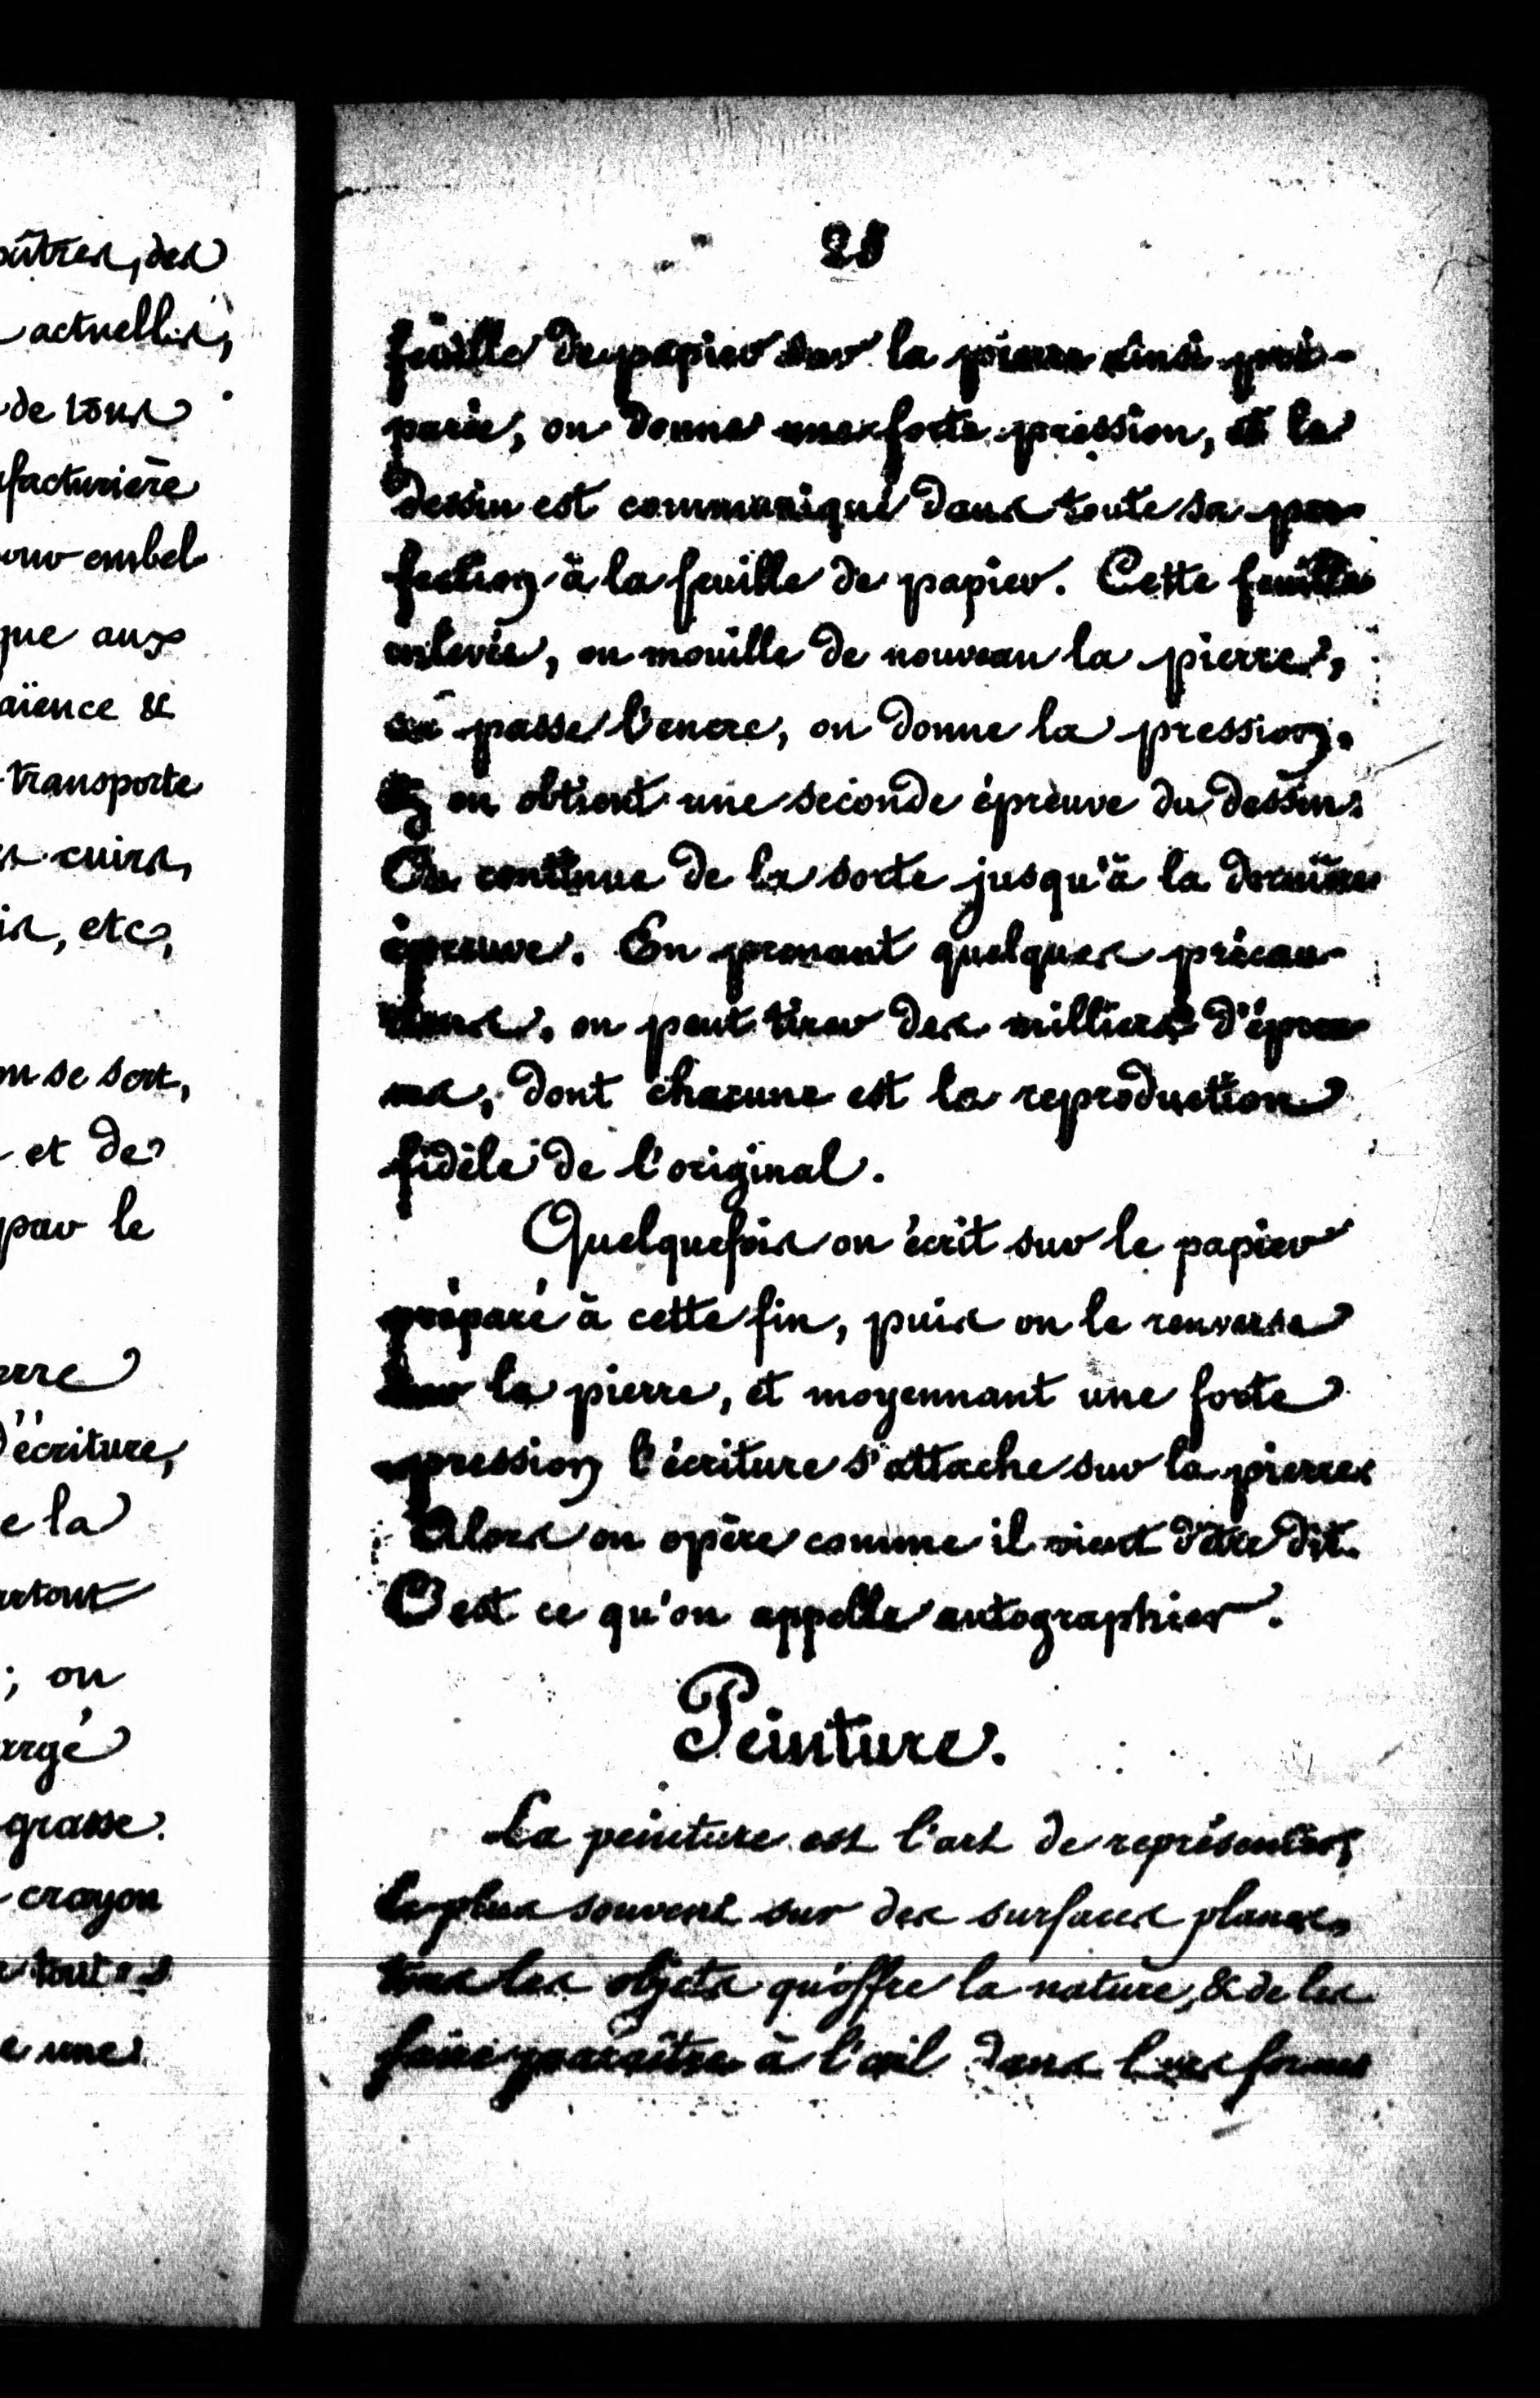 oûtres, des
actuelles,
de tous
facturière
embel
que aux
aïence &
transporte
cuirs,
etc,
on se sert,
et de
par le
erre
d'écriture,
e la
artout
; on
argé
grasse.
crayon
toutes
e une
25
feuille de papier sur la pierre ainsi pré-
parée, on donne une forte pression, et le
dessin est communiqué dans toute sa per-
fection à la feuille de papier. Cette feuille
enlevée, on mouille de nouveau la pierre,
on passe l'encre, on donne la pression,
et on obtient une seconde épreuve du dessin.
On continue de la sorte jusqu'à la dernière
épreuve. En prenant quelques précau-
tions, on peut tirer des milliers d'épreu-
ves, dont chacune est la reproduction
fidèle de l'original.
Quelquefois on écrit sur le papier
préparé à cette fin, puis on le renverse
sur la pierre, et moyennant une forte
pression l'écriture s'attache sur la pierre.
Alors on opère comme il vient d'être dit.
C'est ce qu'on appelle autographier.
Peinture.
La peinture est l'art de représenter,
le plus souvent sur des surfaces planes,
tous les objets qu'offre la nature, & de les
faire paraître à l'œil dans leurs formes